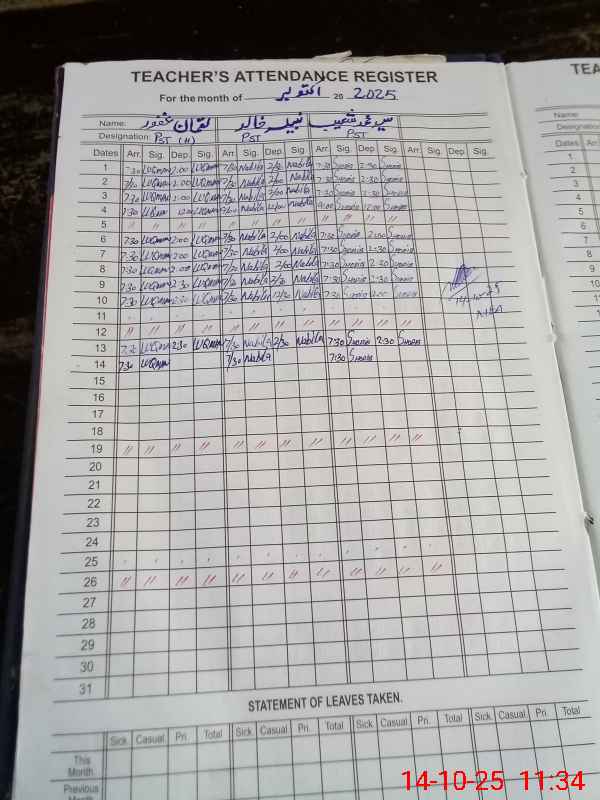 TEACHER'S ATTENDANCE REGISTER
TEA
For the month of اکتوبر 20 2025
Name: لقمان غفور نبیلہ خالد
Name:
Designation: PST (H) PST PST
Designation
Dates Arr. Sig. Dep. Sig. Arr. Sig. Dep. Sig. Arr. Sig. Dep. Sig. Arr. Sig. Dep. Sig.
Dates Arr
1 7:30 LUQMAN 2:00 LUQMAN 7/30 Nabila 2/00 Nabila 7:30 Shoaib 2:30 Shoaib
2 7/30 LUQMAN 2:00 LUQMAN 7/30 Nabila 2/00 Nabila 7:30 Shoaib 2:30 Shoaib
3 7:30 LUQMAN 2:00 LUQMAN 7/30 Nabila 2/00 Nabila 7:30 Shoaib 2:30 Shoaib
4 7:30 LUQMAN 12:00 LUQMAN 7/30 Nabila 12/00 Nabila Shoaib 12:00 Shoaib
5 // // // // // // // // // // //
6 7:30 LUQMAN 2:00 LUQMAN 7/30 Nabila 2/00 Nabila 7:30 Shoaib 2:30 Shoaib
7 7:30 LUQMAN 2:00 LUQMAN 7/30 Nabila 2/00 Nabila 7:30 Shoaib 2:30 Shoaib
8 7:30 LUQMAN 2:00 LUQMAN 7/30 Nabila 2/00 Nabila 7:30 Shoaib 2:30 Shoaib
9 7:30 LUQMAN 2:30 LUQMAN 7/30 Nabila 2/30 Nabila 7:30 Shoaib 2:30 Shoaib
10 7:30 LUQMAN LUQMAN 7/30 Nabila 12/30 Nabila 7:30 Shoaib Shoaib
14-10-25
11
12 // // // // // // // // // // // //
13 7:30 LUQMAN 2:30 LUQMAN 7/30 Nabila 2/30 Nabila 7:30 Shoaib 2:30 Shoaib
14 7:30 LUQMAN 7/30 Nabila 7:30 Shoaib
15
16
17
18
19 // // // // // // // // // // // //
20
21
22
23
24
25
26 // // // // // // // // // // // //
27
28
29
30
31
STATEMENT OF LEAVES TAKEN.
Sick. Casual Pri. Total Sick. Casual Pri. Total Sick. Casual Pri. Total Sick. Casual Pri. Total
This Month
Previous Month
14-10-25 11:34